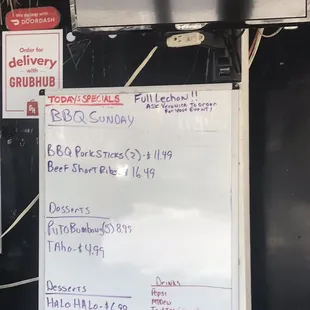 We deliver with
DOORDASH
Order for
delivery
with
GRUBHUB
TODAYS SPECIALS
Full Lechon!!
Ask Veronica To order
For Your Event!
BBQ SUNDAY
BBQ Pork Sticks (2) - $11.99
Beef Short Ribs $16.49
Desserts
Puto Bumbong (5) 8.95
TAho - $4.99
Desserts
HALO HALO - $6.99
Drinks
Pepsi
MDew